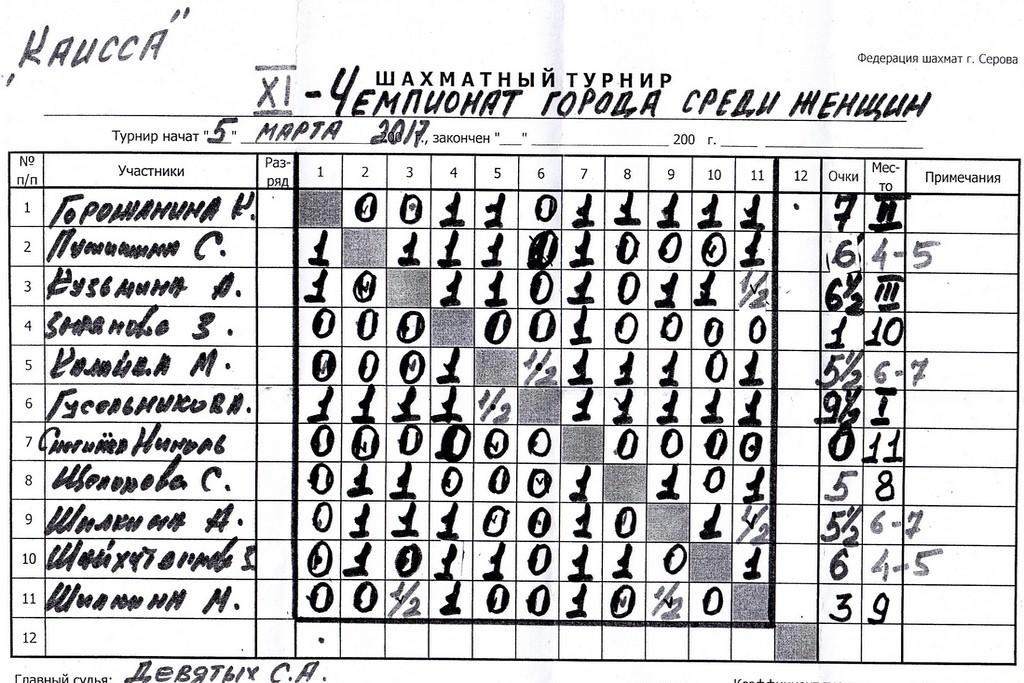 „КАИССА"
Федерация шахмат г. Серова
ШАХМАТНЫЙ ТУРНИР
XI - ЧЕМПИОНАТ ГОРОДА СРЕДИ ЖЕНЩИН
Турнир начат "5" МАРТА 2017г., закончен "__" 200 г.
№ п/п Участники Раз-ряд 1 2 3 4 5 6 7 8 9 10 11 12 Очки Мес-то Примечания
1 ГОРОШАНИНА К. 0 0 1 1 0 1 1 1 1 1 7 II
2 С. 1 1 1 1 0 1 0 0 0 1 6 4-5
3 КУЗЬМИНА А. 1 0 1 1 0 1 0 1 1 1/2 6 1/2 III
4 З. 0 0 0 0 0 1 0 0 0 0 1 10
5 М. 0 0 0 1 1/2 1 1 1 0 1 5 1/2 6-7
6 ГУСЕЛЬНИКОВА. 1 1 1 1 1/2 1 1 1 1 1 9 1/2 I
7 0 0 0 0 0 0 0 0 0 0 0 11
8 С. 0 1 1 0 0 0 1 1 0 1 5 8
9 ШИЛКИНА А. 0 1 1 1 0 0 1 0 1 1/2 5 1/2 6-7
10 0 1 0 1 1 0 1 1 0 1 6 4-5
11 ШИЛКИНА М. 0 0 1/2 1 0 0 1 0 1/2 0 3 9
12
Главный судья: ДЕВЯТЫХ С.А.